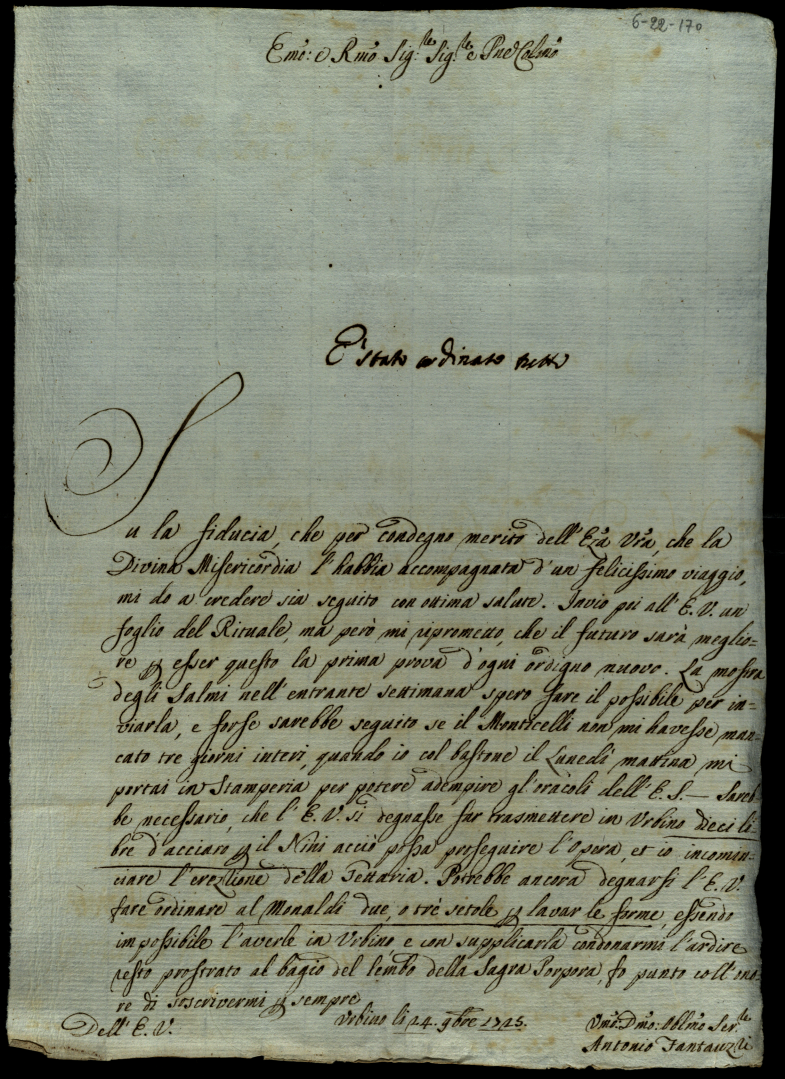 6-22-170
Emo: e Rmo Sig:re Sig:re e Pne Colmo
E' stato ordinato tutto
Su la fiducia, che per condegno merito dell'Eza Vra, che la
Divina Misericordia l'habbia accompagnata d'un felicissimo viaggio,
mi do a credere sia seguito con ottima salute. Invio poi all'E.V. un
foglio del Rituale, ma però mi riprometto, che il futuro sarà meglio=
re p esser questo la prima prova d'ogni ordigno nuovo. La mostra
degli Salmi nell'entrante settimana spero fare il possibile per in=
viarla, e forse sarebbe seguito se il Monticelli non mi havesse man=
cato tre giorni interi, quando io col bastone il Lunedì mattina mi
portai in Stamperia per potere adempire gl'oracoli dell'E.S. — Sareb=
be necessario, che l'E.V. si degnasse far trasmettere in Urbino dieci li=
bre d'acciaro p il Nini acciò possa proseguire l'Opera, et io incomin=
ciare l'erezzione della Gettaria. Potrebbe ancora degnarsi l'E.V.
fare ordinare al Monaldi due, o trè setole p lavar le forme essendo
impossibile l'averle in Urbino e con supplicarla condonarmi l'ardire
resto prostrato al bagio del lembo della Sagra Porpora, fo punto coll'ono=
re di soscrivermi p sempre
Dell'E.V.
Urbino li 14. 9bre 1725.
Umo: Dmo: Oblmo Ser:re
Antonio Fantauzzi